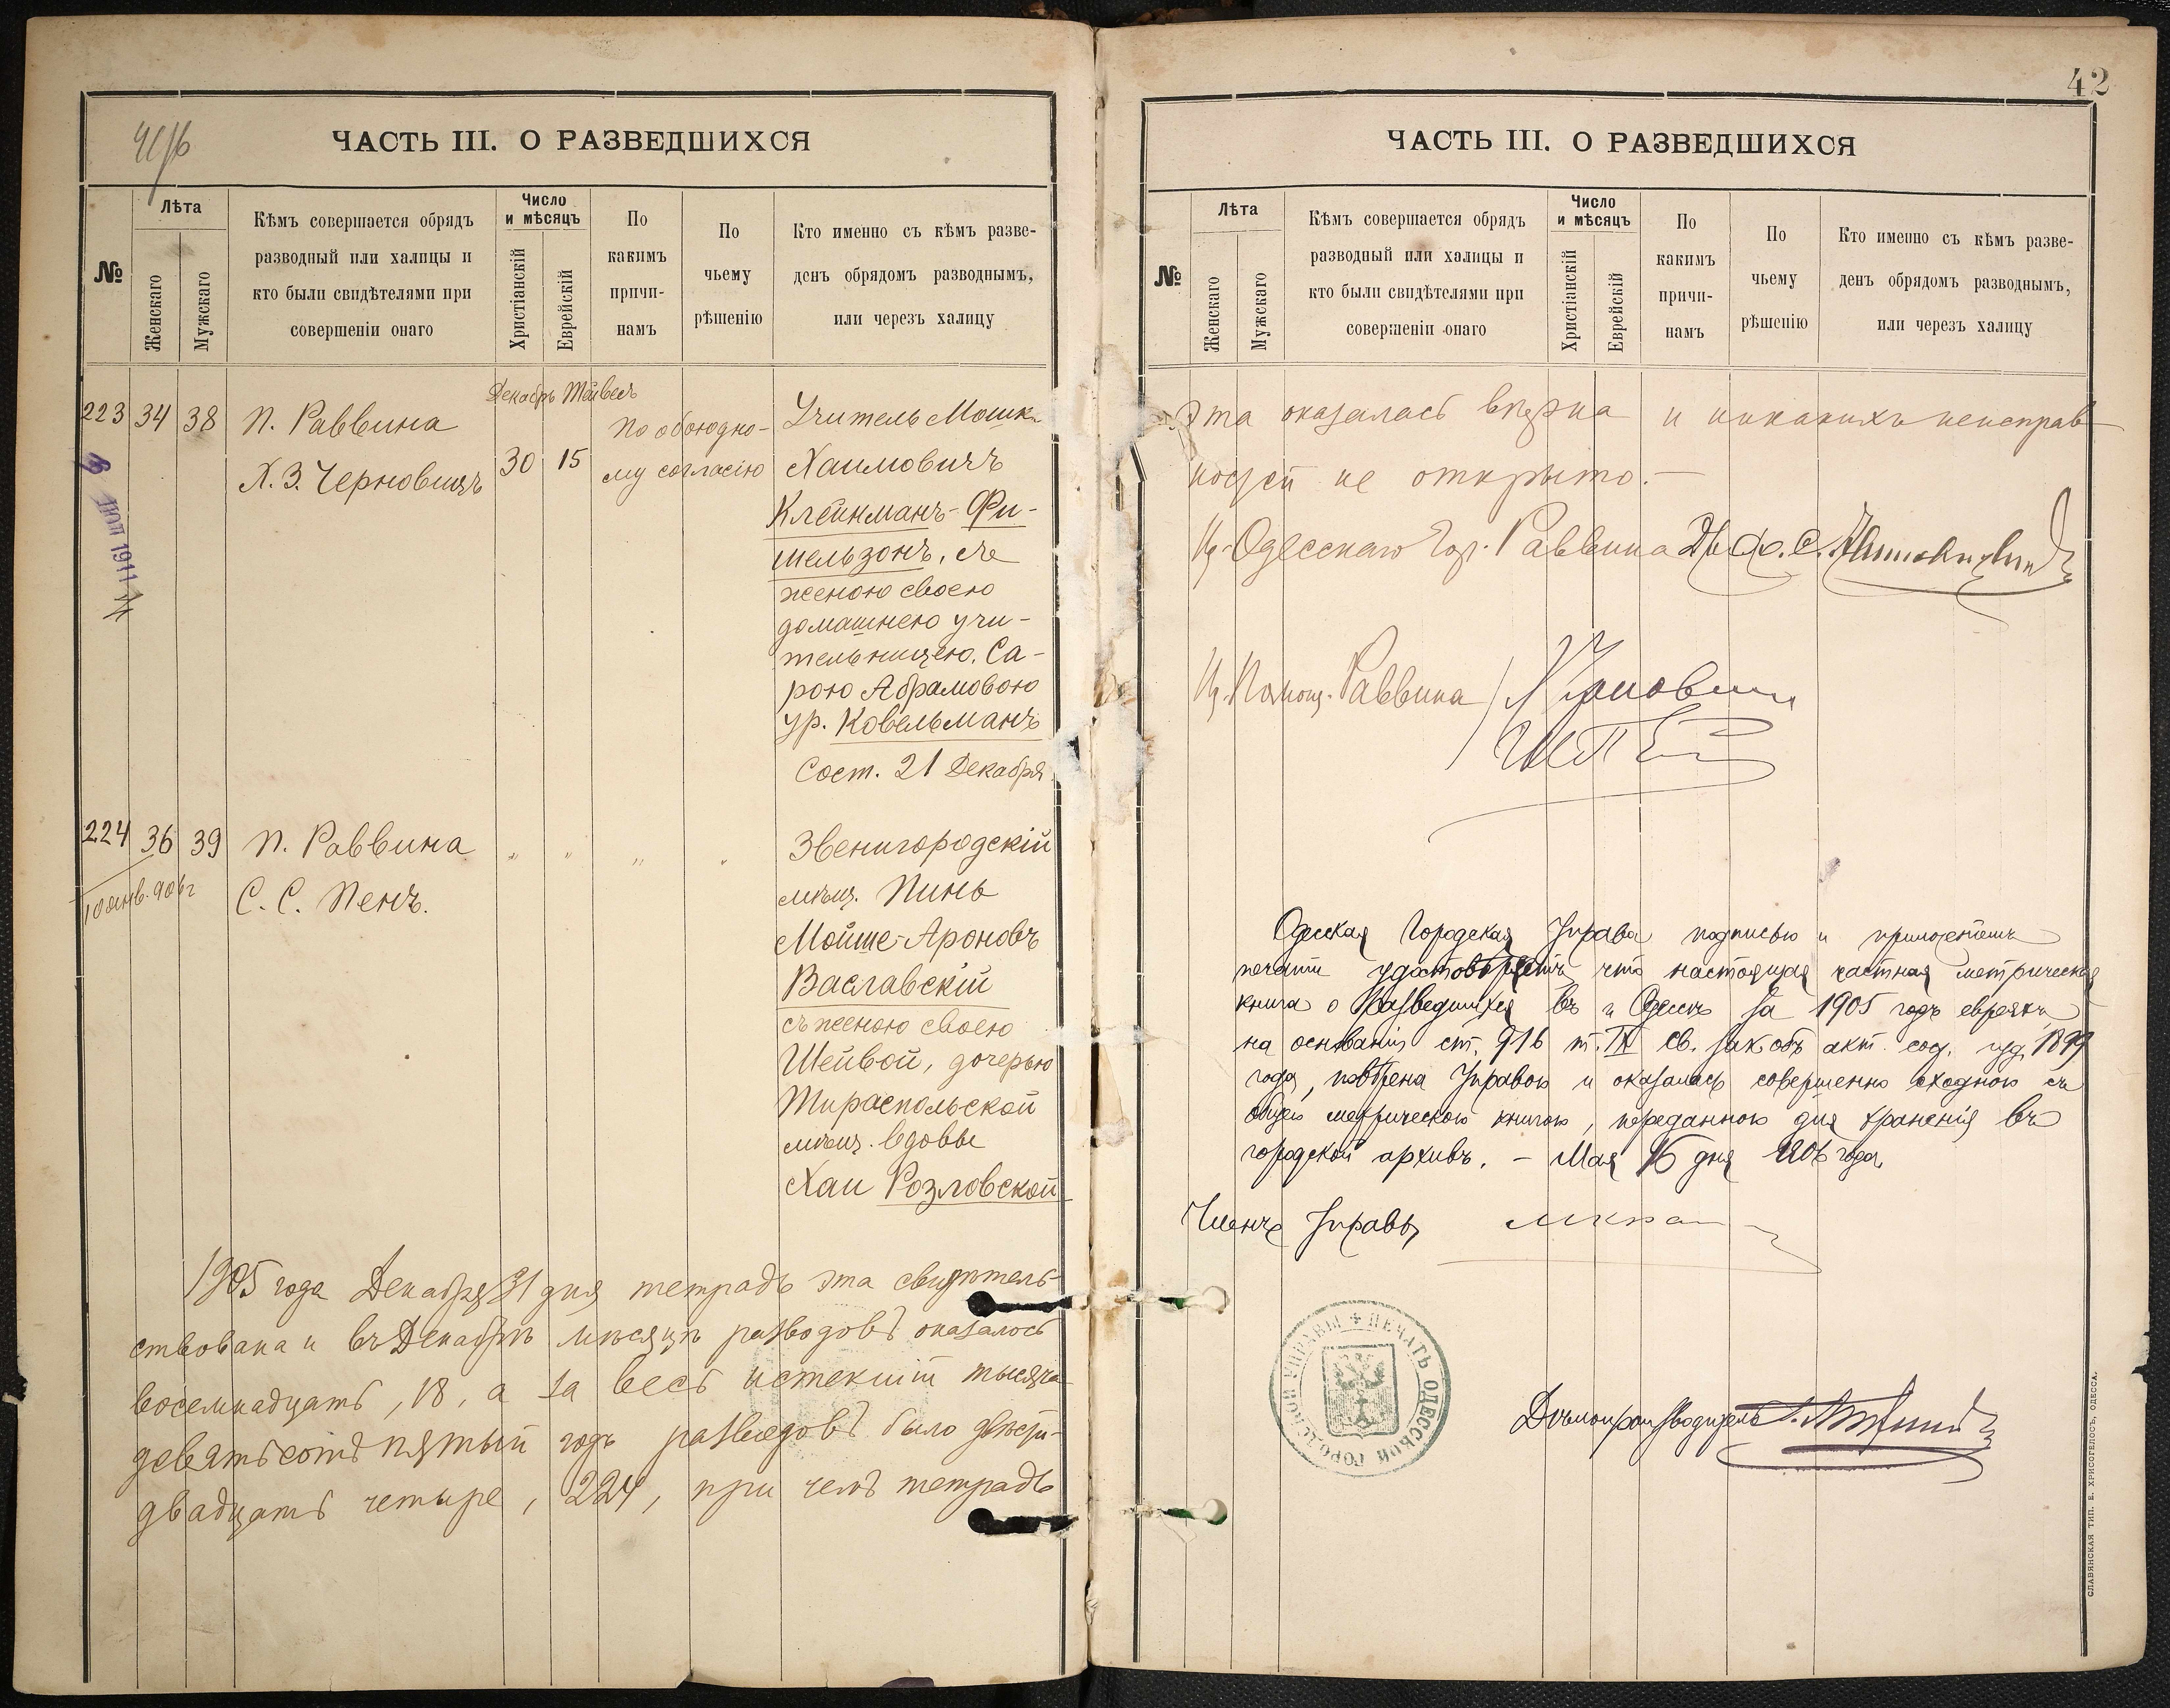 ЧАСТЬ III. О РАЗВЕДШИХСЯ
№
Лѣта
Женскаго
Мужскаго
Кѣмъ совершается обрядъ
разводный или халицы и
кто были свидѣтелями при
совершеніи онаго
Число
и мѣсяцъ
Христіанскій
Еврейскій
По
какимъ
причи-
намъ
По
чьему
рѣшенію
Кто именно съ кѣмъ разве-
денъ обрядомъ разводнымъ,
или черезъ халицу
223 34 38
П. Раввина
Х. З. Черновицъ
Декабрь Тейвесъ
30 15
По обоюдно-
му согласію
Учитель Мошко
Хаимовичъ
Клейнманъ-Фи-
шельзонъ, съ
женою своею
домашнею учи-
тельницею, Са-
рою Абрамовою
ур. Ковельманъ
Сост. 21 Декабря
4 1911
224 36 39
10 янв. 906 г
П. Раввина
С. С. Пенъ.
" " " "
Звенигородскій
мѣщ. Пинь
Мойше-Ароновъ
Ваславскій
съ женою своею
Шейвой, дочерью
Тираспольской
мѣщ. вдовы
Хаи Розловской
1905 года Декабря 31 дня тетрадь эта свидѣтель-
ствована и въ Декабрѣ мѣсяцѣ разводовъ оказалось
восемнадцать, 18, а за весь истекшій тысяча
девятьсотъ пятый годъ разводовъ было двѣсти-
двадцать четыре, 224, при чемъ тетрадь
42
ЧАСТЬ III. О РАЗВЕДШИХСЯ
№
Лѣта
Женскаго
Мужскаго
Кѣмъ совершается обрядъ
разводный или халицы и
кто были свидѣтелями при
совершеніи онаго
Число
и мѣсяцъ
Христіанскій
Еврейскій
По
какимъ
причи-
намъ
По
чьему
рѣшенію
Кто именно съ кѣмъ разве-
денъ обрядомъ разводнымъ,
или черезъ халицу
эта оказалась вѣрна и никакихъ неисправ-
ностей не открыто.—
И. Одесскаго Гор. Раввина
И. Помощ. Раввина
Одесская Городская Управа подписью и приложеніемъ
печати удостовѣряетъ что настоящая частная метрическая
книга о Разведшихся въ г. Одессѣ за 1905 годъ евреяхъ
на основаніи ст. 916 т. IX св. зак. объ акт. сос. изд. 1899
года, повѣрена Управою и оказалась совершенно сходною съ
общею метрическою книгою, переданною для храненія въ
городской архивъ. — Мая 16 дня 1906 года.
Членъ Управы
ПЕЧАТЬ ОДЕССКОЙ ГОРОДСКОЙ УПРАВЫ
Дѣлопроизводитель
СЛАВЯНСКАЯ ТИП. Е. ХРИСОГЕЛОСЪ, ОДЕССА.